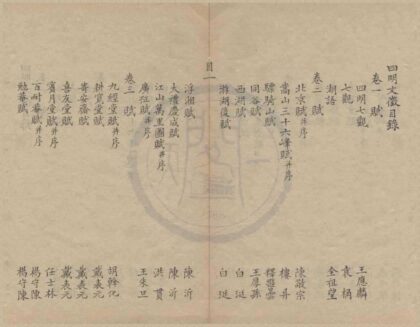 四明文徵目錄
卷一 賦
四明七觀 王應麟
七觀 袁桷
湖語 全祖望
卷二 賦
北京賦并序 陳敬宗
嵩山三十六峰賦并序 樓异
驃騎山賦 釋曇噩
同谷賦 王厚孫
西湖賦 白珽
游湖後賦 白珽
目一
浮湘賦 陳沂
大禮慶成賦 陳沂
江山萬里圖賦并序 洪貫
廣征賦并序 王朱旦
卷三 賦
九經堂賦并序 胡幹化
耕寬堂賦 戴表元
壽安齋賦 戴表元
喜友堂賦 戴表元
賓月堂賦并序 任士林
百耐菴賦并序 楊守陳
勉菴賦 楊守陳